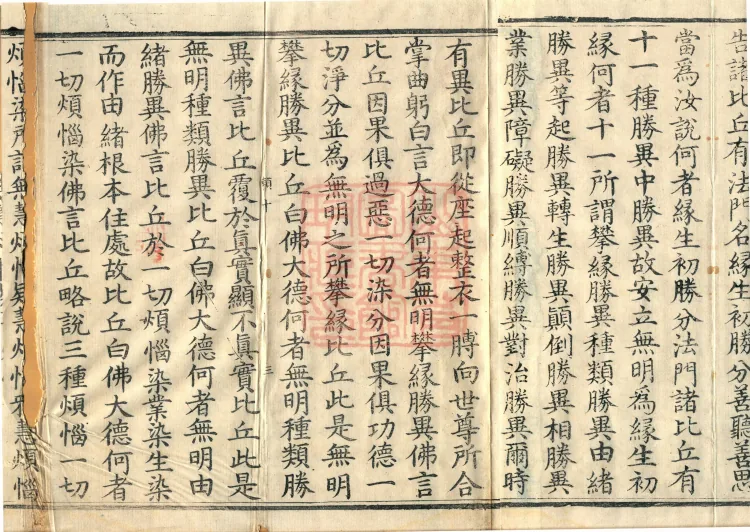 告諸比丘有法門名緣生初勝分善聽善思
當爲汝說何者緣生初勝分法門諸比丘有
十一種勝異中勝異故安立無明爲緣生初
緣何者十一所謂攀緣勝異種類勝異由緒
勝異等起勝異轉生勝異顚倒勝異相勝異
業勝異障礙勝異順縛勝異對治勝異爾時
有異比丘即從座起整衣一髆向世尊所合
掌曲躬白言大德何者無明攀緣勝異佛言
比丘因果俱過惡一切染分因果俱功德一
切淨分並爲無明之所攀緣比丘此是無明
攀緣勝異比丘白佛大德何者無明種類勝
三
異佛言比丘覆於眞實顯不眞實比丘此是
無明種類勝異比丘白佛大德何者無明由
緒勝異佛言比丘於一切煩惱染業染生染
而作由緒根本住處故比丘白佛大德何者
一切煩惱染佛言比丘略說三種煩惱一切
煩惱染所謂無慧煩惱疑慧煩惱邪慧煩惱